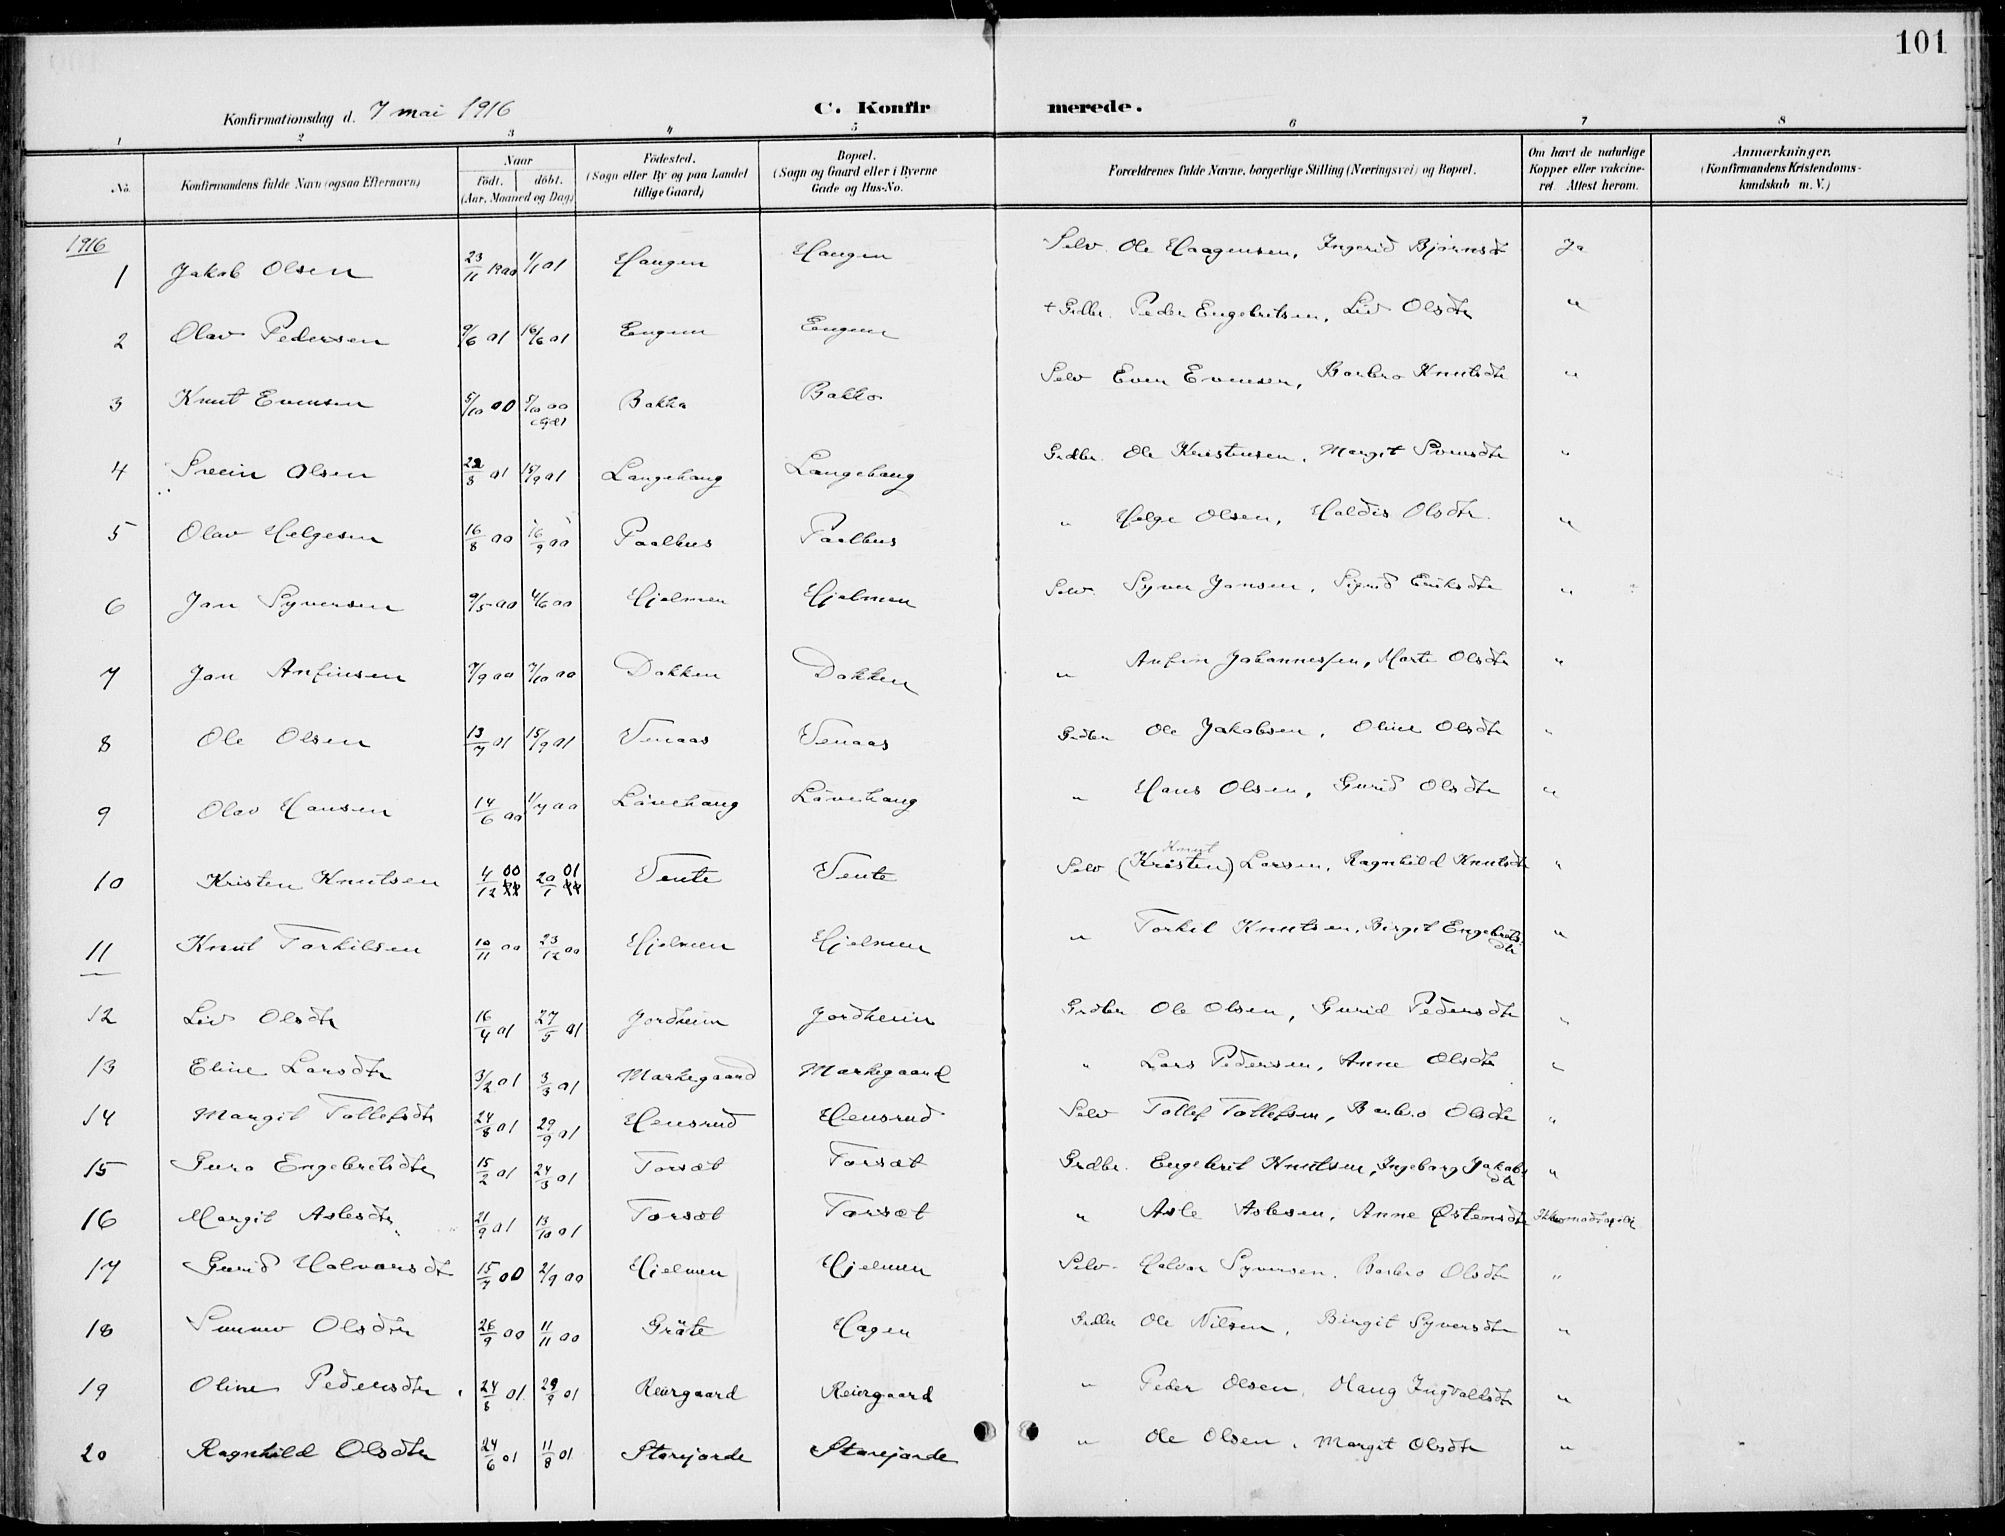 101
Konfirmationsdag d. 7 mai 1916
C. Konfirmerede.
1 2 3 4 5 6 7 8
No. Konfirmandens fulde Navn (ogsaa Efternavn) Naar født. døbt. (Aar, Maaned og Dag) Fødested. (Sogn eller By og paa Landet tillige Gaard) Bopæl. (Sogn og Gaard eller i Byerne Gade og Hus-No. Forældrenes fulde Navne, borgerlige Stilling (Næringsvei) og Bopæl. Om havt de naturlige Kopper eller vakcineret. Attest herom. Anmærkninger. (Konfirmandens Kristendomskundskab m. V.)
1916
1 Jakob Olsen 23/11 1900 1/1 01 Haugen Haugen Selv. Ole Haagensen, Ingerid Bjørnsdtr Ja
2 Olav Pedersen 9/6 01 16/6 01 Engene Engene + Grdbr. Peder Engebritsen, Liv Olsdtr "
3 Knut Evensen 5/10 00 5/10 00 Bakko Bakko Selv Even Evensen, Barbro Knutsdtr "
4 Svein Olsen 22/8 01 15/9 01 Langehaug Langehaug Grdbr. Ole Kristensen, Margit Svensdtr "
5 Olav Helgesen 16/8 00 16/9 00 Paalhus Paalhus " Helge Olsen, Haldis Olsdtr. "
6 Jon Syversen 9/5 00 4/6 00 Hjelmen Hjelmen Selv. Syver Jonsen, Sigrid Eriksdtr "
7 Jon Anfinsen 7/9 00 7/10 00 Dokken Dokken " Anfin Johannessen, Marte Olsdtr "
8 Ole Olsen 13/7 01 15/9 01 Venaas Venaas Grdbr Ole Jakobsen, Oline Olsdtr "
9 Olav Hansen 14/6 00 1/7 00 Løvehaug Løvehaug " Hans Olsen, Gurid Olsdtr "
10 Kristen Knutsen 4/12 00 20/1 01 Vente Vente Selv (Kristen) Knut Larsen, Ragnhild Knutsdtr "
11 Knut Torkilsen 10/11 00 23/12 00 Hjelmen Hjelmen " Torkil Knutsen, Birgit Engebretsdtr "
12 Liv Olsdtr 16/4 01 27/5 01 Jordheim Jordheim Grdbr Ole Olsen, Gurid Pedersdtr "
13 Eline Larsdtr 3/2 01 3/3 01 Markegaard Markegaard " Lars Pedersen, Anne Olsdtr "
14 Margit Tollefsdtr 24/8 01 29/9 01 Hensrud Hensrud Selv Tollef Tollefsen, Barbro Olsdtr "
15 Guro Engebretsdtr 15/2 01 24/3 01 Torsæt Torsæt Grdbr. Engebrit Knutsen, Ingeborg Jakobsdtr "
16 Margit Aslesdtr 21/9 01 13/10 01 Torsæt Torsæt " Asle Aslesen, Anne Østensdtr
17 Gurid Halvorsdtr 15/7 00 2/9 00 Hjelmen Hjelmen Selv. Halvor Syversen, Barbro Olsdtr "
18 Sunnev Olsdtr 26/9 00 11/11 00 Grøte Hagen Grdbr Ole Nilsen, Birgit Syversdtr "
19 Oline Pedersdtr 24/8 01 29/9 01 Reiergaard Reiergaard " Peder Olsen, Haug Ingvaldsdtr "
20 Ragnhild Olsdtr 24/6 01 11/8 01 Storejorde Storejorde " Ole Olsen, Margit Olsdtr "